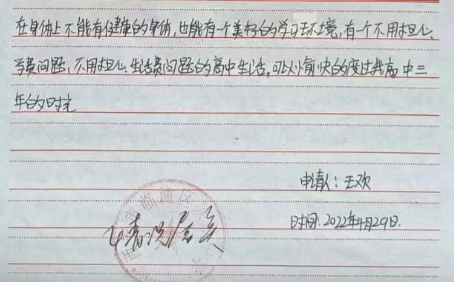 在身体上不能有健康的身体,也能有一个美好的学习环境,有一个不用担心
学费问题,不用担心生活费问题的高中生活,可以愉快的度过我高中三
年的时光
申请人:王欢
时间:2022年4月29日.